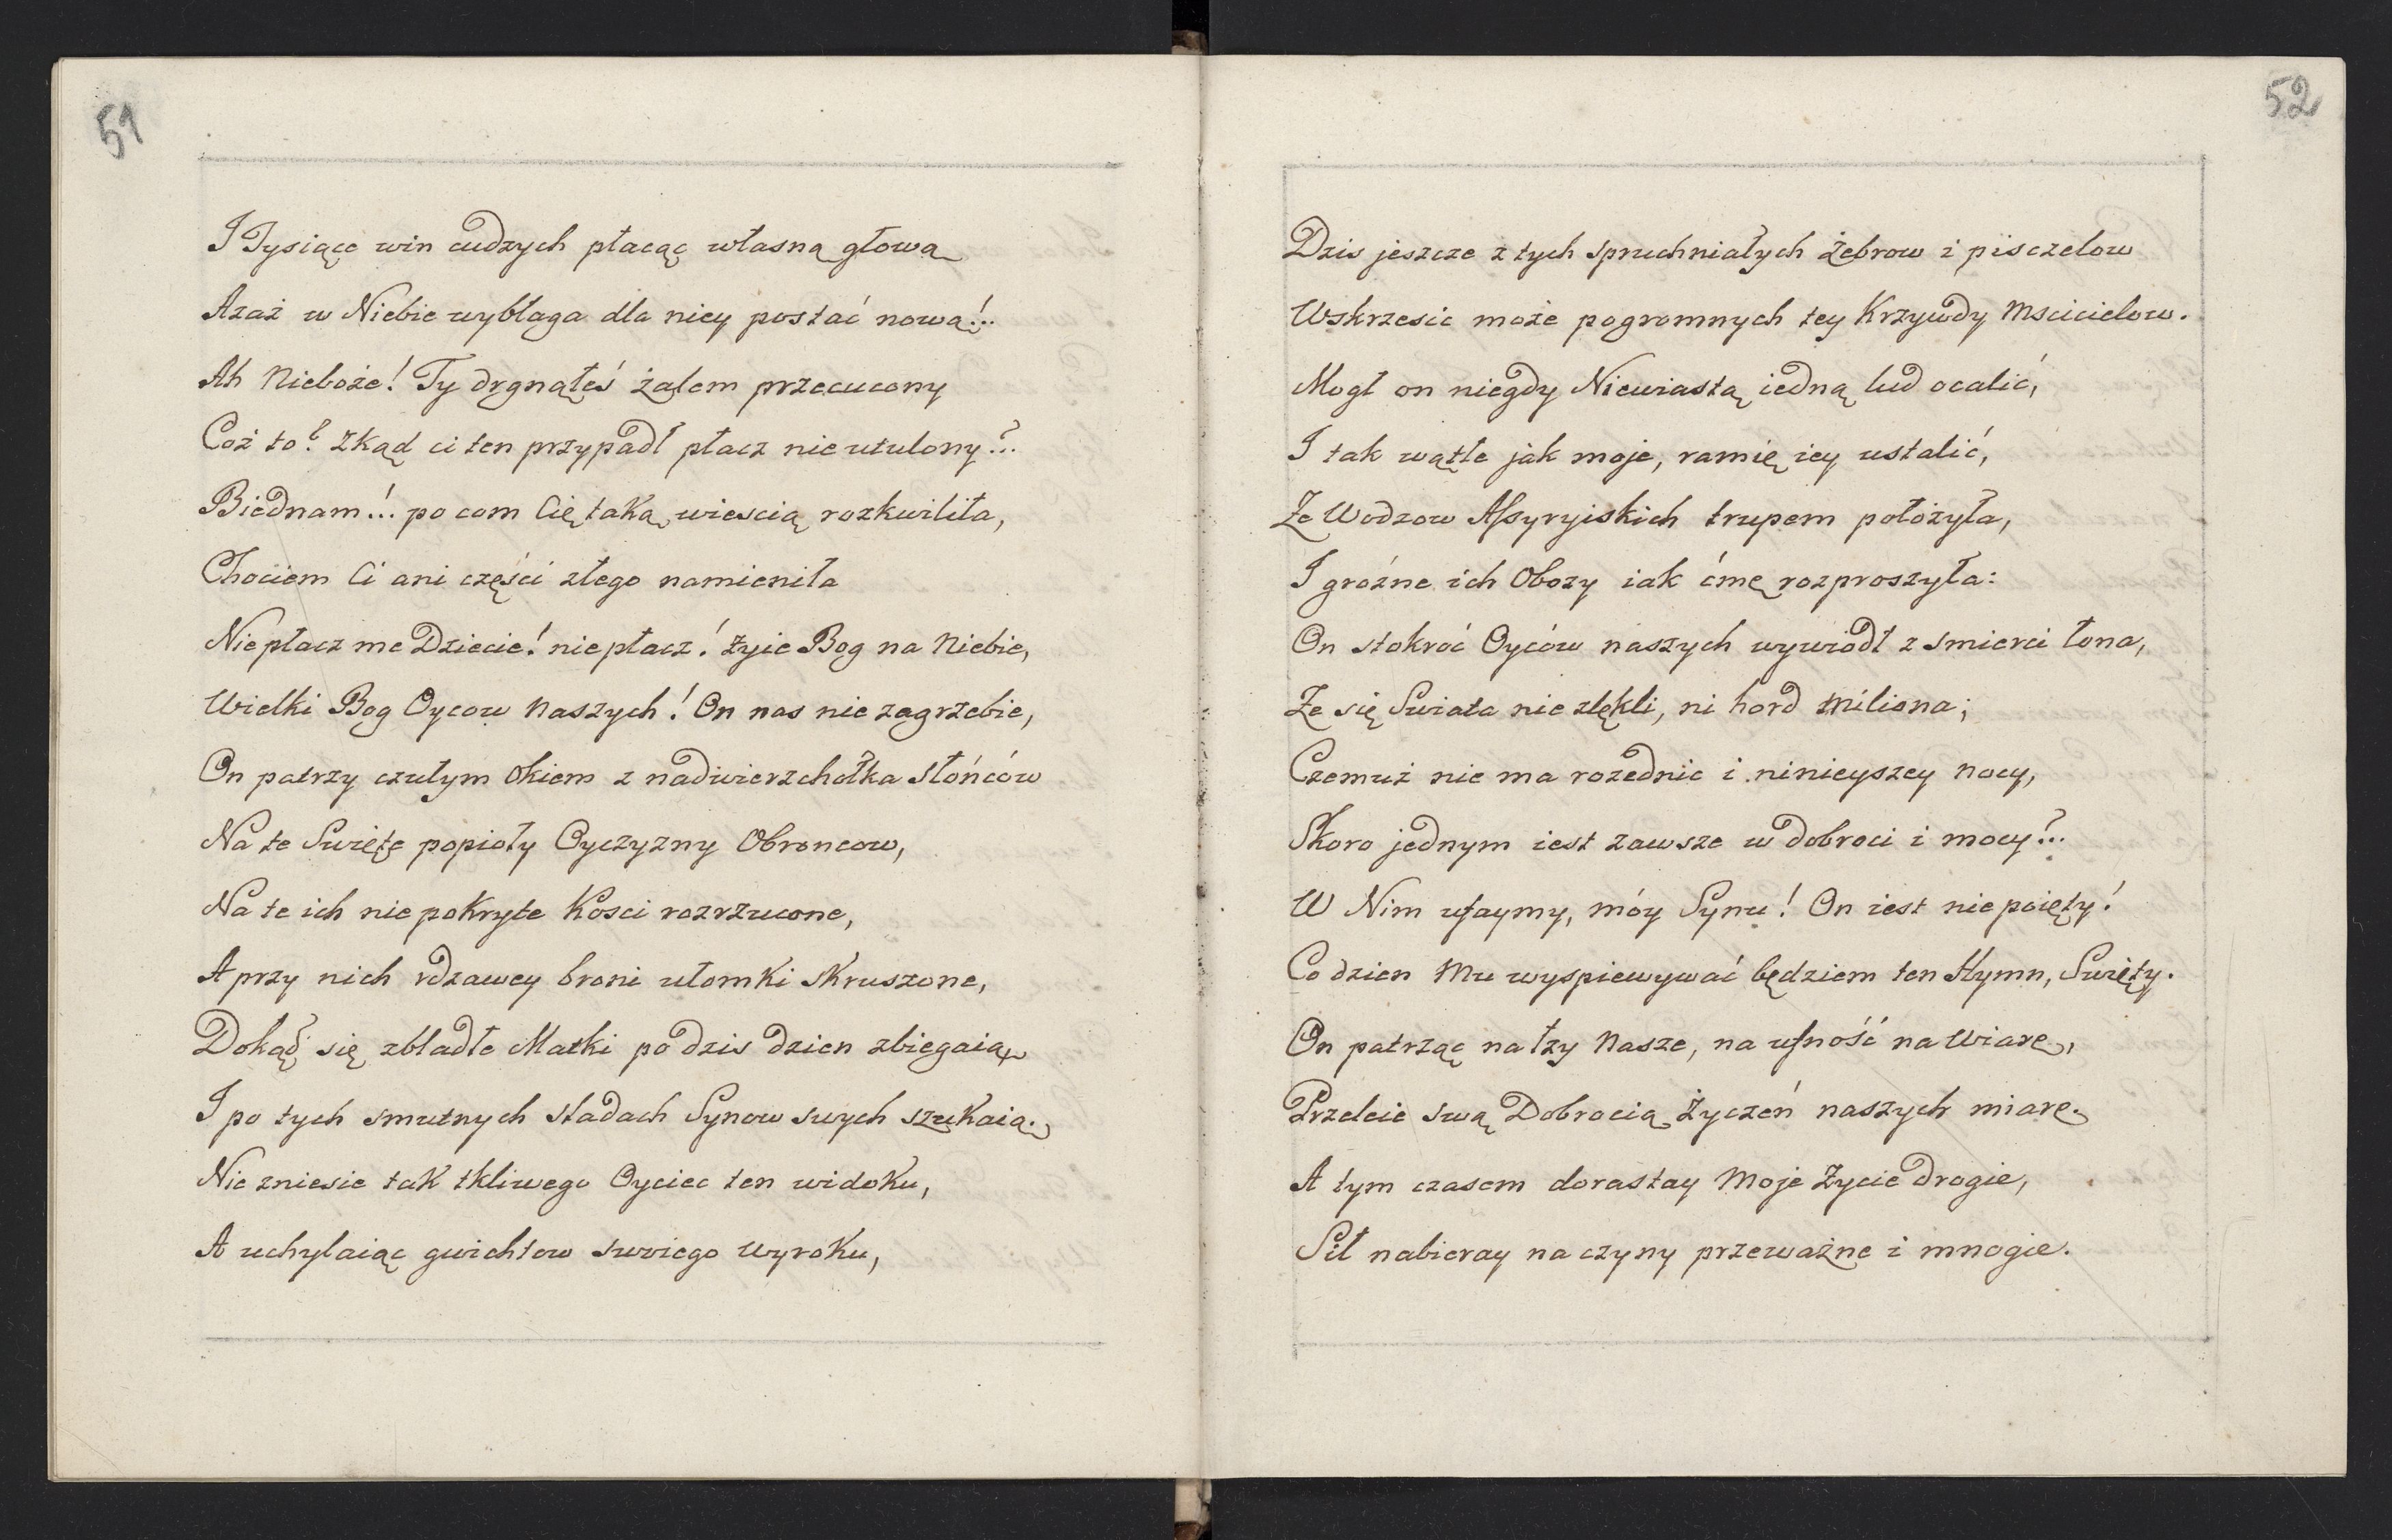 51
I Tysiące win cudzych płacąc własną głową
Azaż w Niebie wybłaga dla niey postać nową!..
Ah Nieboże! Ty drgnąłeś żalem przecucony
Coż to? zkąd ci ten przypadł płacz nie utulony?..
Biednam!.. po com Cię taką wiescią rozkwiliła,
Chociem Ci ani części złego namieniła
Nie płacz me Dziecie! nie płacz! żyie Bog na Niebie,
Wielki Bog Oycow Naszych! On nas nie zagrzebie,
On patrzy czułym Okiem z nadwierzchołka Słońców
Na te Swięte popioły Oyczyzny Obroncow,
Na te ich nie pokryte Kosci rozrzucone,
A przy nich rdzawey broni ułomki skruszone,
Dokąd się zbladłe Matki po dzis dzien zbiegaią
I po tych smutnych sladach Synow swych szukaią.
Nie zniesie tak tkliwego Oyciec ten widoku,
A uchylaiąc gwichtow swoiego Wyroku,
52
Dzis jeszcze z tych spruchniałych żebrow i pisczelow
Wskrzesic może pogromnych tey Krzywdy Mscicielow.
Mogł on niegdy Niewiastą iedną lud ocalić,
I tak wątłe jak moje, ramię iey ustalić,
Ze Wodzow Assyryiskich trupem położyła,
I groźne ich Obozy iak ćmę rozproszyła:
On stokroć Oyców naszych wywiodł z smierci łona,
Ze się Swiata nie zlękli, ni hord Miliona;
Czemuż nie ma rozednic i ninieyszey Nocy,
Skoro jednym iest zawsze w dobroci i mocy?..
W Nim ufaymy, móy Synu! On iest nie poięty!
Co dzien Mu wyspiewywać będziem ten Hymn, Swięty.
On patrząc na łzy Nasze, na ufność na Wiarę,
Przeleie swą Dobrocią Życzeń naszych miarę.
A tym czasem dorastay Moje Życie drogie,
Sił nabieray na czyny przeważne i mnogie.